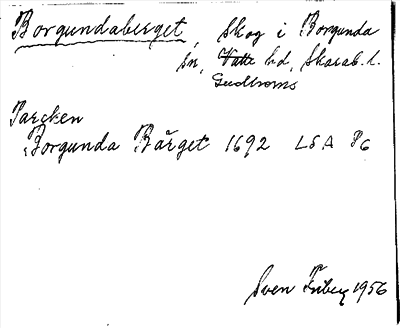 Borgundaberget, Skog i Borgunda
sn, Vatte hd, Skarab. l.
Gudhems
Parcken
Borgunda Bärget 1692 LSA P6
Sven Friberg 1956